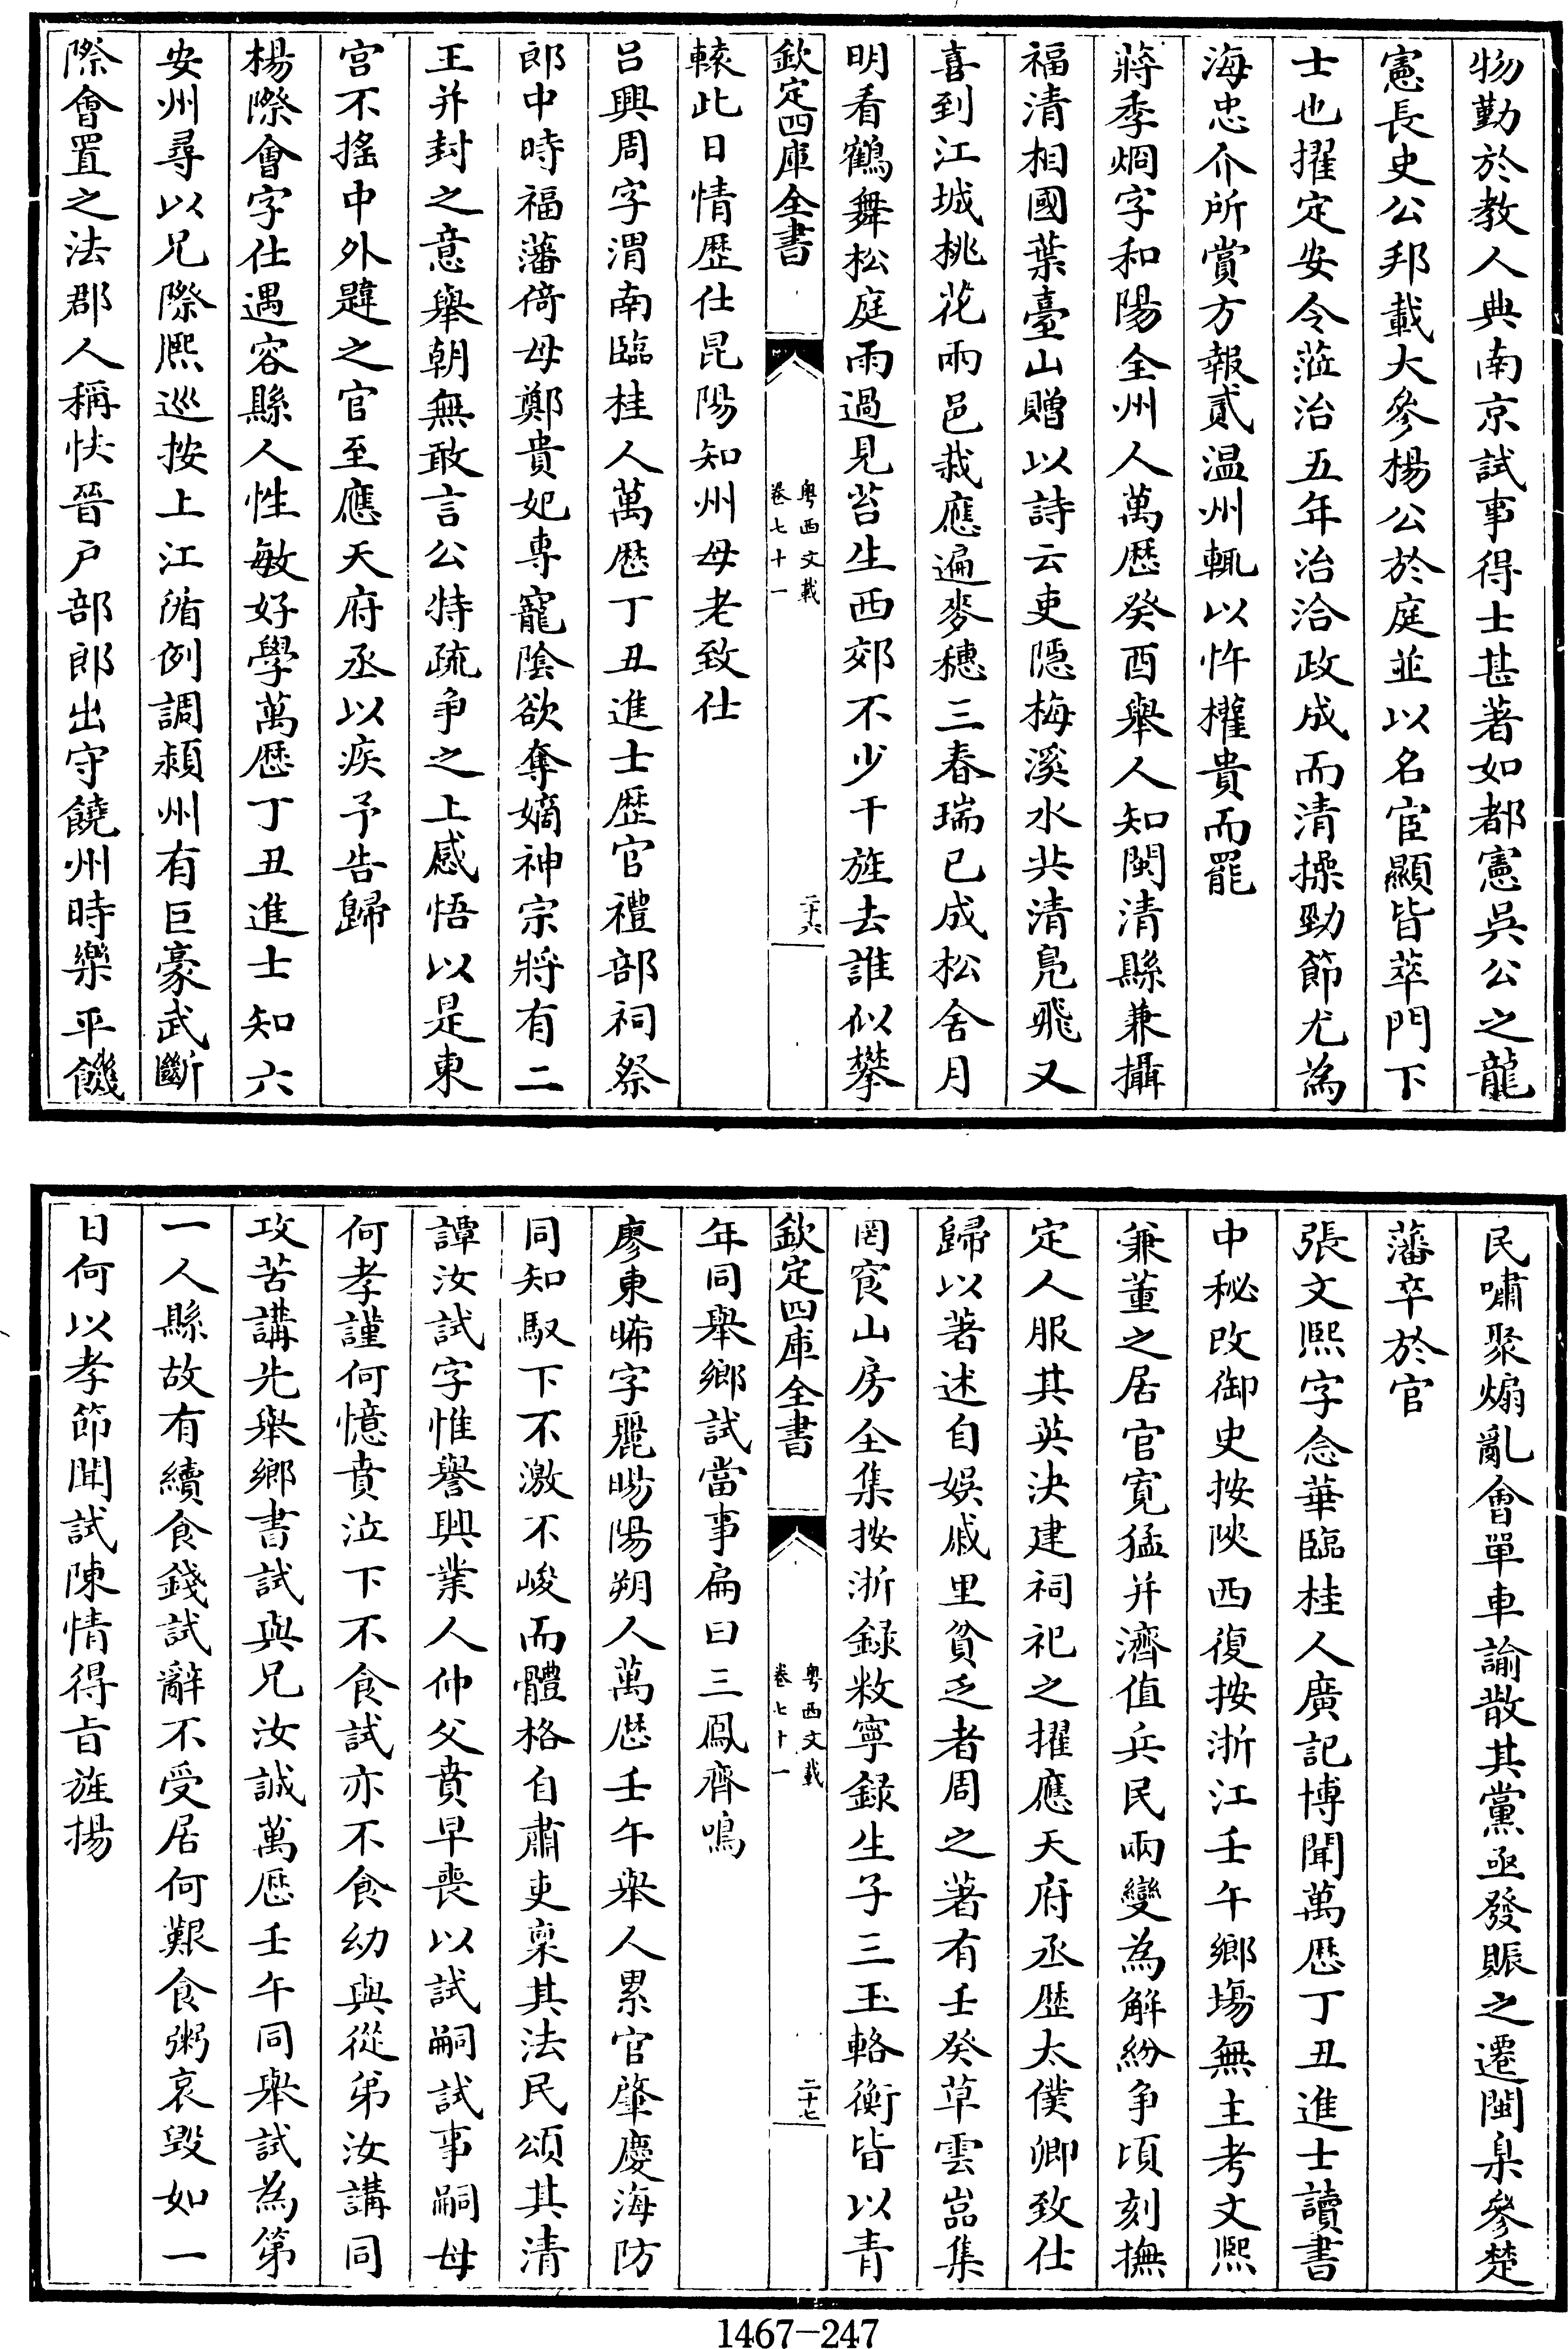 物勤於教人典南京試事得士甚著如都憲吳公之龍
憲長史公邦載大參楊公於庭並以名宦顯皆萃門下
士也擢定安令蒞治五年治洽政成而清操勁節尤為
海忠介所賞方報貳温州輒以忤權貴而罷
蔣季烱字和陽全州人萬歴癸酉舉人知閩清縣兼攝
福清相國葉臺山贈以詩云吏隱梅溪水共清鳧飛又
喜到江城桃花兩邑栽應遍麥穗三春瑞已成松舍月
明看鶴舞松庭雨過見苔生西郊不少干旌去誰似攀
欽定四庫全書
粤西文載
卷七十一
二十六
轅此日情歴仕昆陽知州母老致仕
吕興周字渭南臨桂人萬歴丁丑進士歴官禮部祠祭
郎中時福藩倚母鄭貴妃專寵陰欲奪嫡神宗將有二
王并封之意舉朝無敢言公特疏争之上感悟以是東
宫不搖中外韙之官至應天府丞以疾予告歸
楊際會字仕遇容縣人性敏好學萬歴丁丑進士知六
安州尋以兄際熈巡按上江循例調潁州有巨豪武斷
際會置之法郡人稱快晉户部郎出守饒州時樂平饑
民嘯聚煽亂會單車諭散其黨亟發賑之遷閩臬參楚
藩卒於官
張文熙字念華臨桂人廣記博聞萬歴丁丑進士讀書
中秘改御史按陜西復按浙江壬午鄉塲無主考文熙
兼董之居官寛猛并濟值兵民兩變為解紛争頃刻撫
定人服其英決建祠祀之擢應天府丞歴太僕卿致仕
歸以著述自娱戚里貧乏者周之著有壬癸草雲嵓集
罔食山房全集按浙録敉寧録生子三玉輅衡皆以青
欽定四庫全書
粤西文載
卷七十一
二十七
年同舉鄉試當事扁曰三鳳齊鳴
廖東晞字麗暘陽朔人萬歴壬午舉人累官肇慶海防
同知馭下不激不峻而體格自肅吏稟其法民頌其清
譚汝試字惟譽興業人仲父賁早喪以試嗣試事嗣母
何孝謹何憶賁泣下不食試亦不食幼與從弟汝講同
攻苦講先舉鄉書試與兄汝誠萬歴壬午同舉試為第
一人縣故有續食錢試辭不受居何艱食粥哀毁如一
日何以孝節聞試陳情得㫖旌揚
1467-247